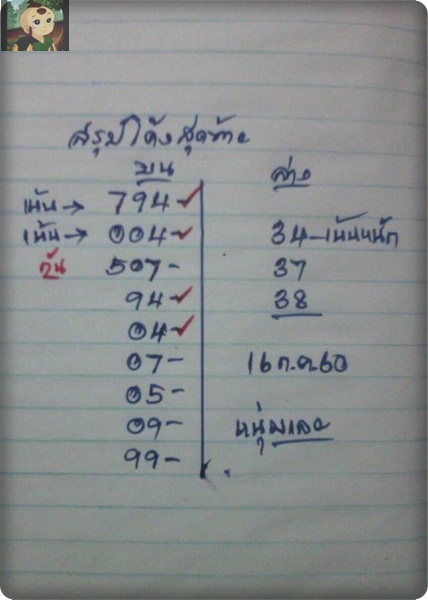 สรุปโค้งสุดท้าย
บน ล่าง
เน้น → 794 ✓
เน้น → 004 ✓ 34-เน้นหนัก
กัน 507- 37
94 ✓ 38
04 ✓
07-
05- 16 ก.ค. 60
09- หนุ่มเลย
99-